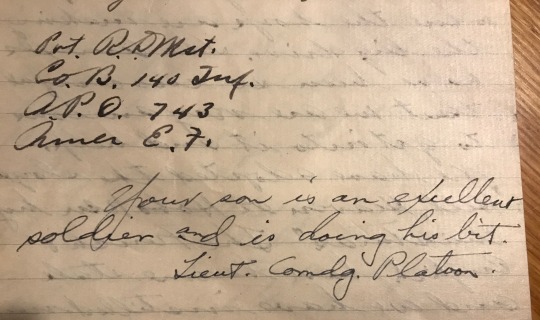 Pvt. R. D. Mst.
Co. B. 140 Inf.
A. P. O. 743
Amer E. F.
Your son is an excellent
soldier and is doing his bit.
Lieut. Comdg. Platoon.